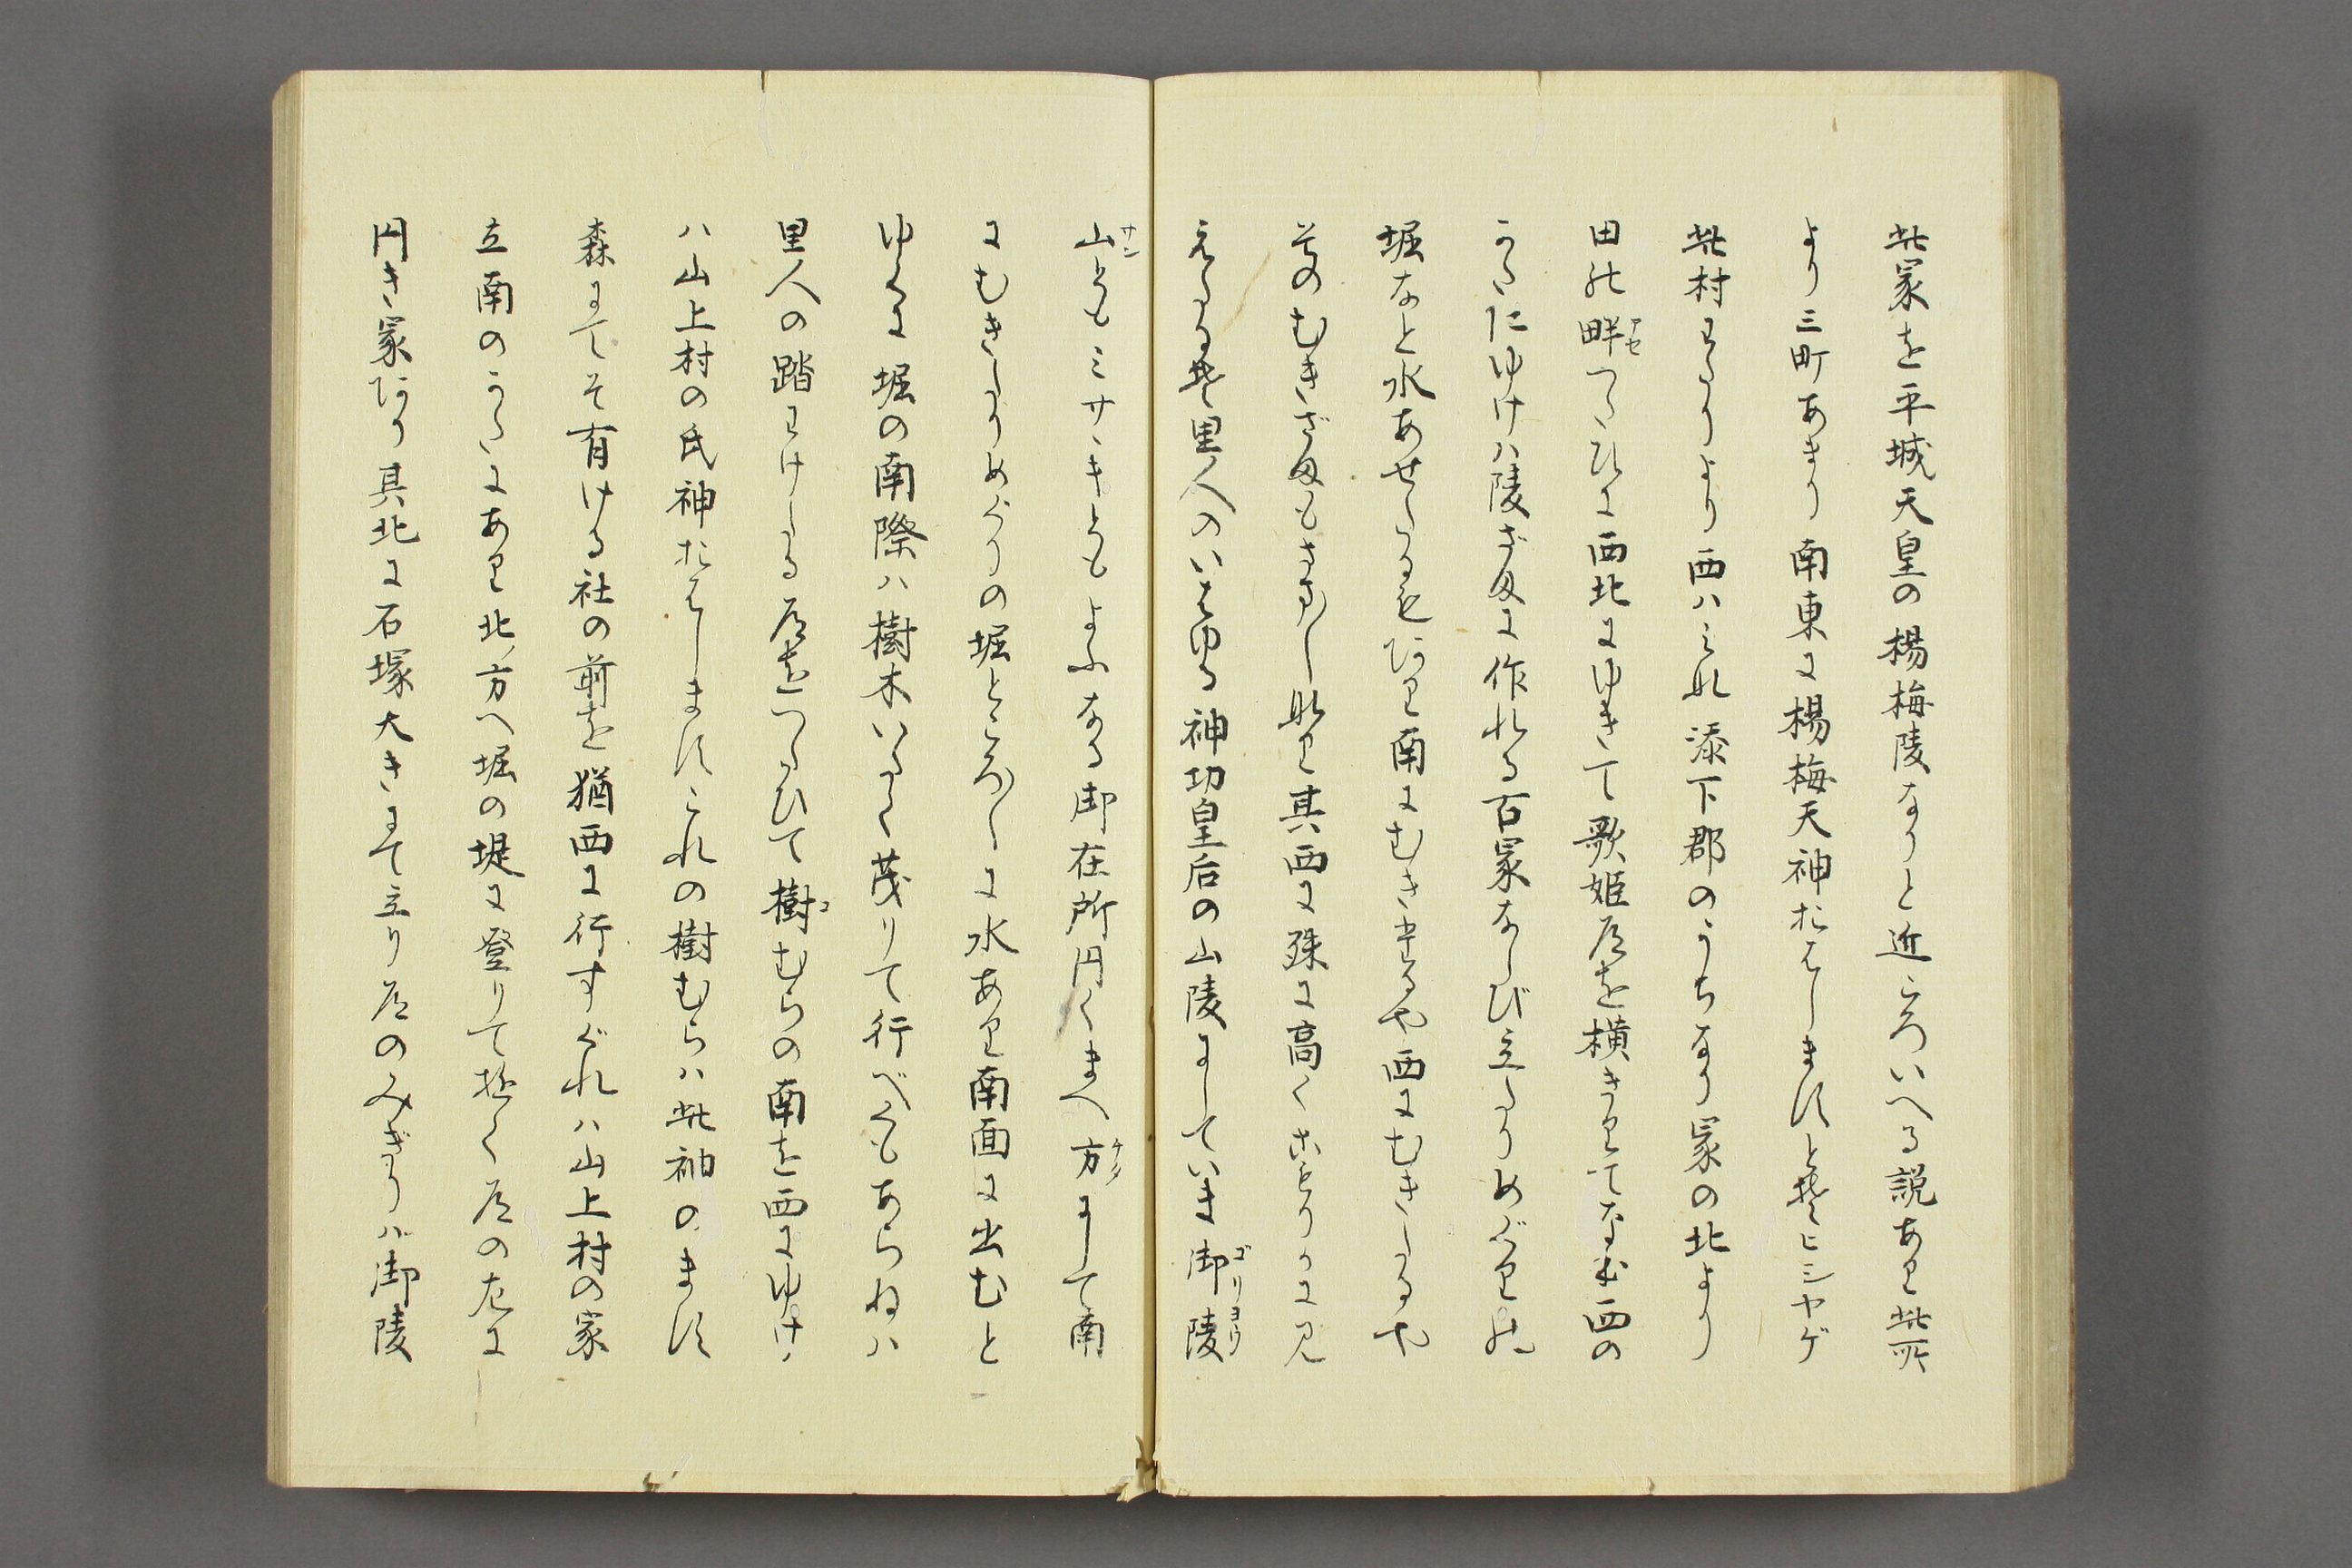 此冢を平城天皇の楊梅陵なりと近ころいへる説あり此所
より三町あまり南東に楊梅天神おはしますと是ヒシヤゲ
此村わたりより西ハみな添下郡のうちなり冢の北より
田の畔アセつたひに西北にゆきて歌姫道を横きりてなむ西の
かたにゆけハ陵ざまに作れる古冢ならび立たりめぐりの
堀なと水あせたるもあり南にむきするや西にむきたるや
そのむきざまもさだし難し其西に殊に高くこもりかに見
えたるぞ里人のいはゆる神功皇后の山陵にしていま御陵ゴリヨウ
山サンともミサヽキともよふなる御在所円くまへ方ケタにして南
にむきたりめぐりの堀ところ〳〵に水あり南面に出むと
ゆくに堀の南際ハ樹木いたく茂りて行べくもあらねハ
里人の踏わけたる道をつたひて樹コむらの南を西にゆけ
ハ山上村の氏神おはしますこれの樹むらハ此神のます
森にてそ有ける社の前を猶西に行すぐれハ山上村の家
立南のかたにあり北ノ方へ堀の堤に登りて極く道の左に
円き冢あり其北に石塚大きにて立り道のみぎりハ御陵